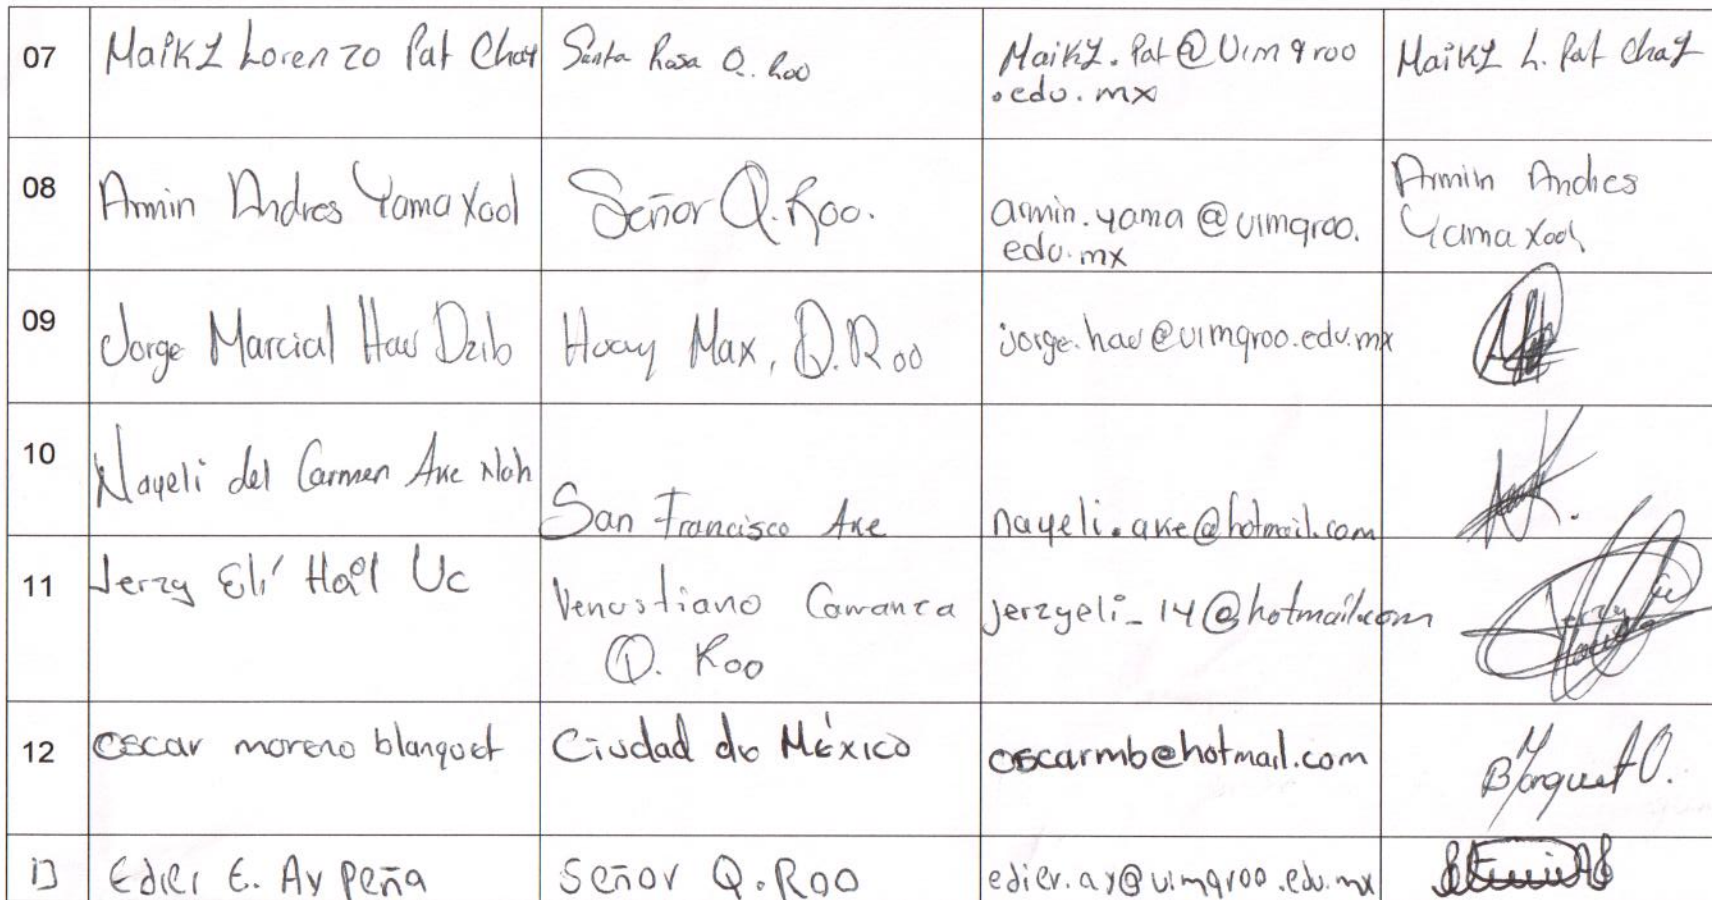 07 Maiky Lorenzo Pat Chay Santa Rosa Q. Roo Maiky.Pat@Uimqroo Maiky L. Pat Chay
.edu.mx
08 Armin Andres Yama Xool Señor Q. Roo. armin.yama@uimqroo. Armin Andres
edu.mx Yama Xool
09 Jorge Marcial Hau Dzib Huay Max, Q. Roo jorge.hau@uimqroo.edu.mx
10 Nayeli del Carmen Ake Noh San Francisco Ake nayeli.ake@hotmail.com
11 Jerzy Elí Hail Uc Venustiano Carranza jerzyeli_14@hotmail.com Jerzy
Q. Roo
12 oscar moreno blanquet Ciudad de México oscarmb@hotmail.com Blanquet O.
13 Edier E. Ay Peña Señor Q. Roo edier.ay@uimqroo.edu.mx